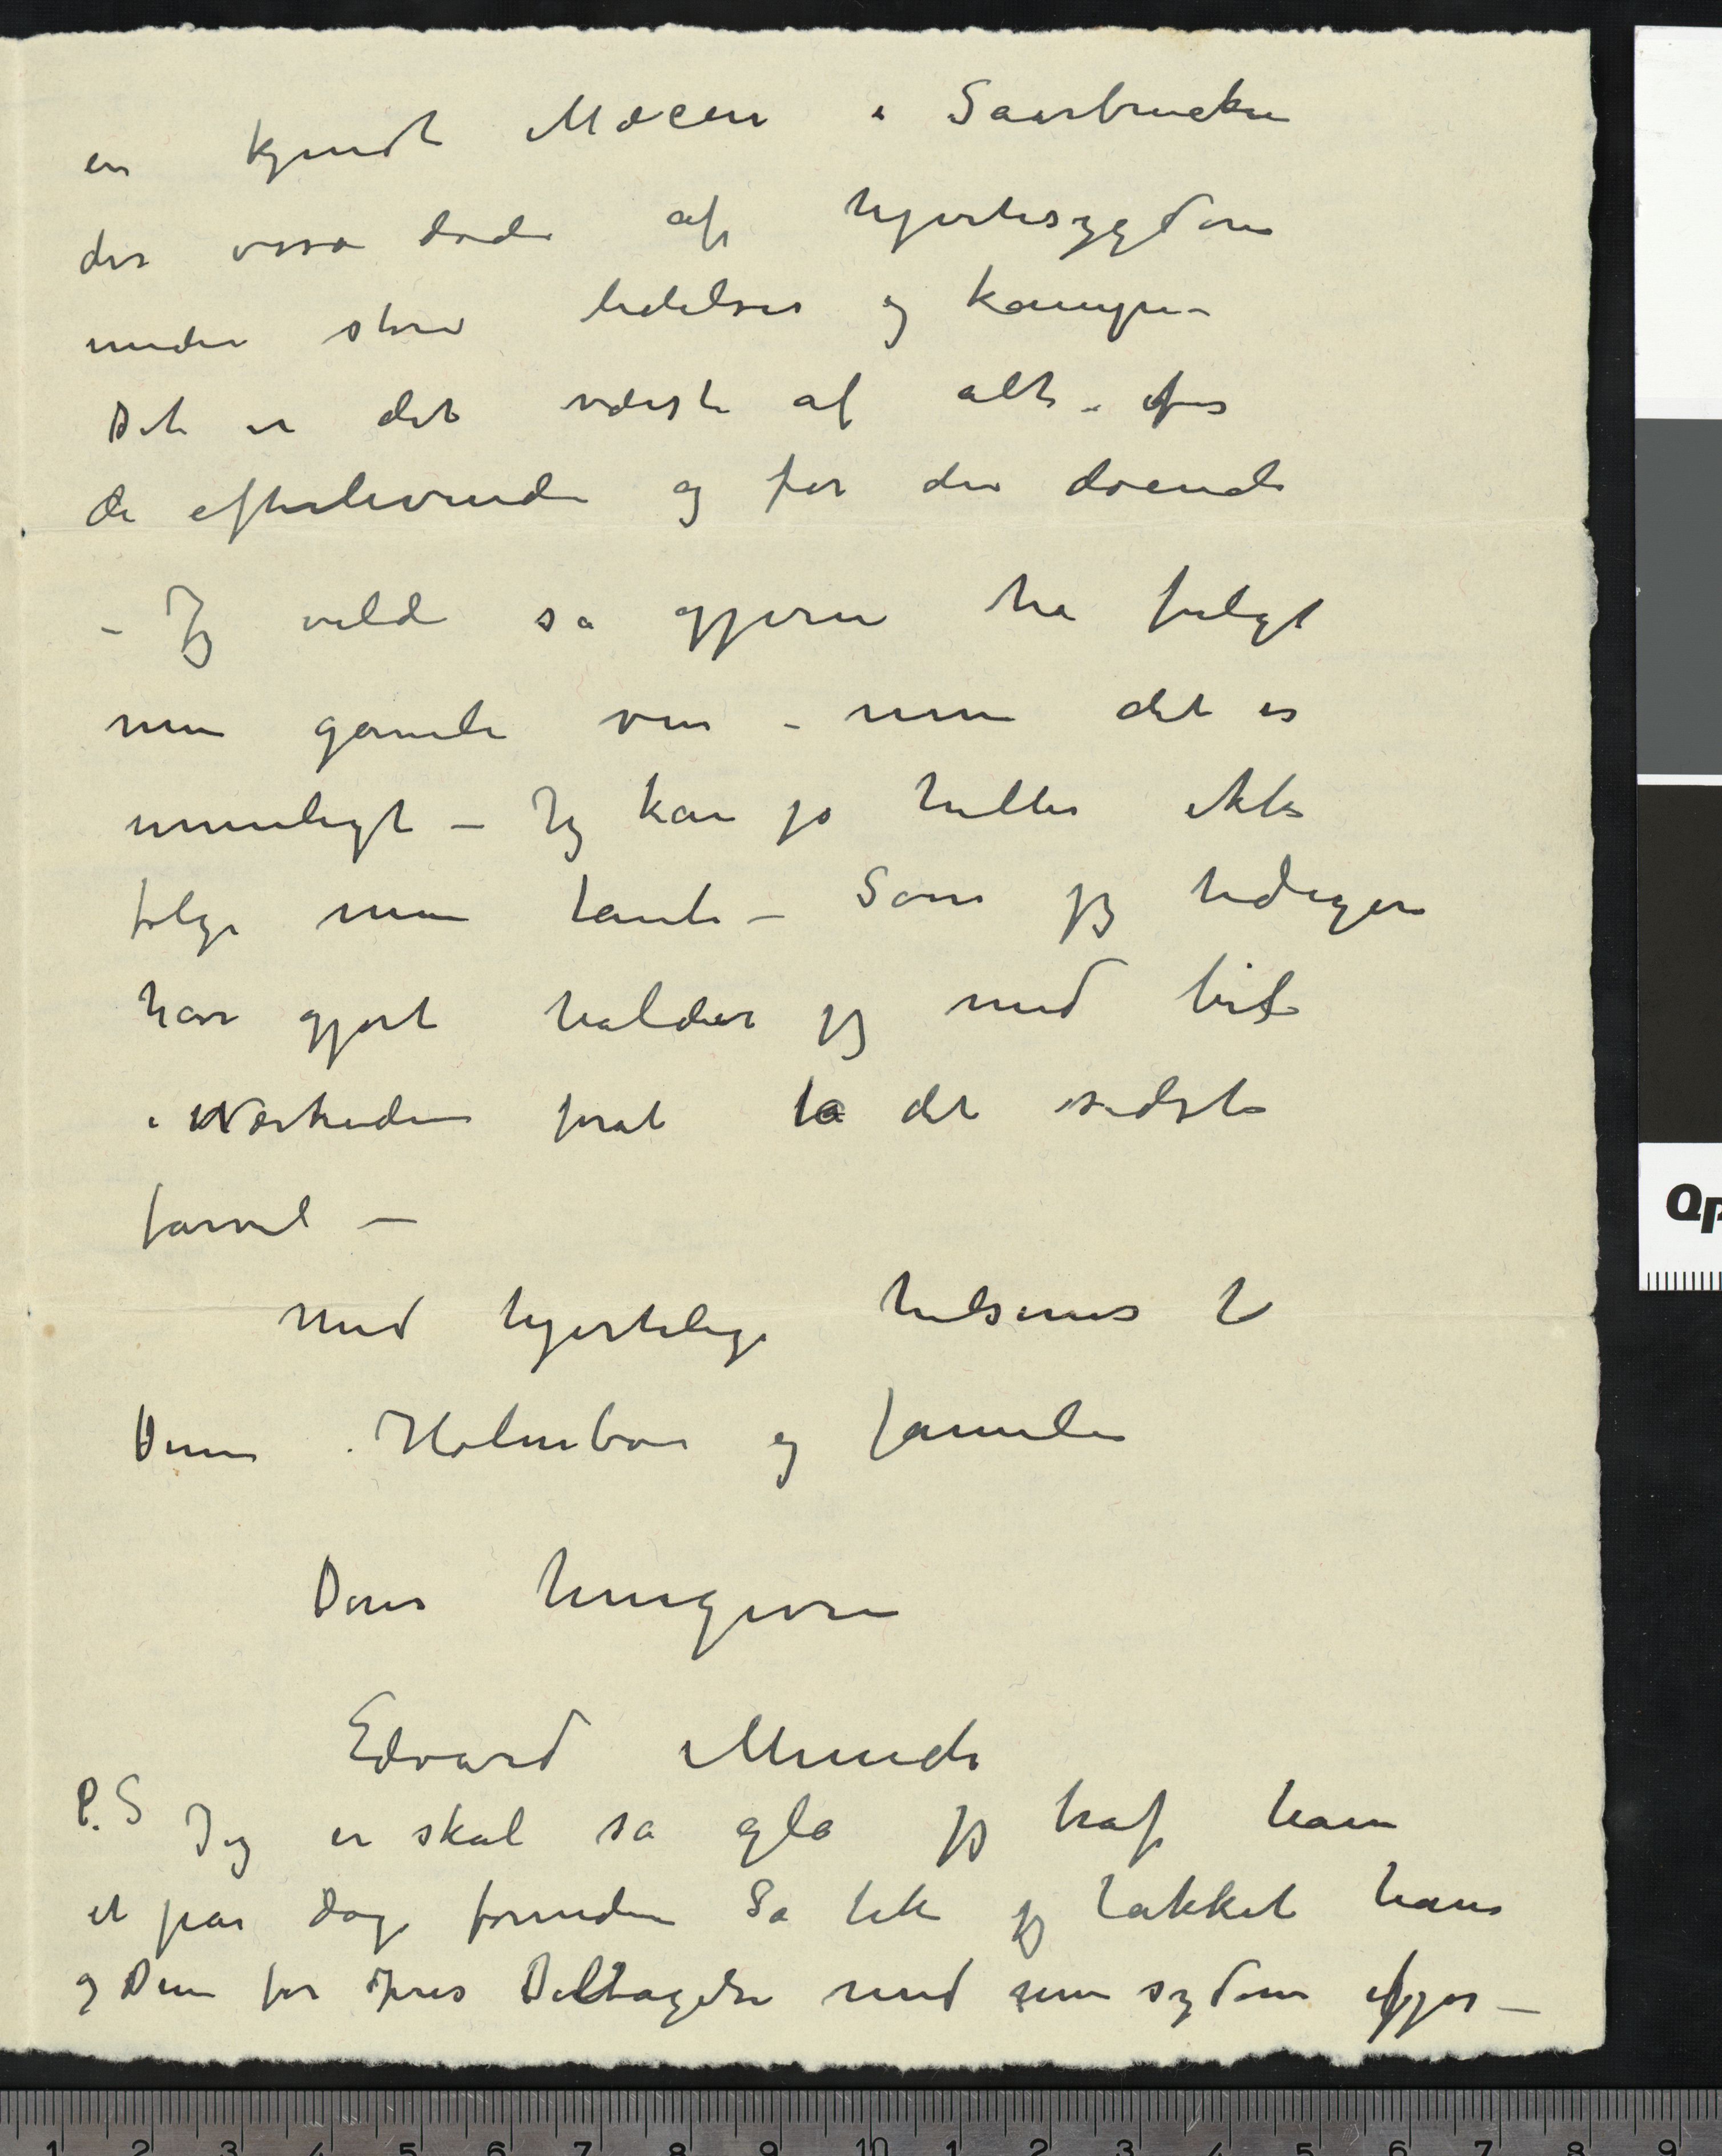 en kjendt Mæcen i Saarbrucken
der osså døde af hjertesygdom
under store lidelser og kampe –
Det er det værste af alt – for
de efterlevende og for den døende
– Jeg vilde så gjerne ha fulgt
min gamle ven – men det er
umuligt – Jeg kan jo heller ikke
følge min tante – Som jeg tidligere
har gjort holder jeg med bil
i Nærheden forat ta det sidste
farvel –
Med hjertelige hilsener til
Dem Holmboe og familie
Deres hengivne
Edvard Munch
P.S Jeg er skal så gla jeg traf ham
et par dage forinden Så fik jeg takket ham
og Dem for Jeres Deltagelse med min sydom ifjor –